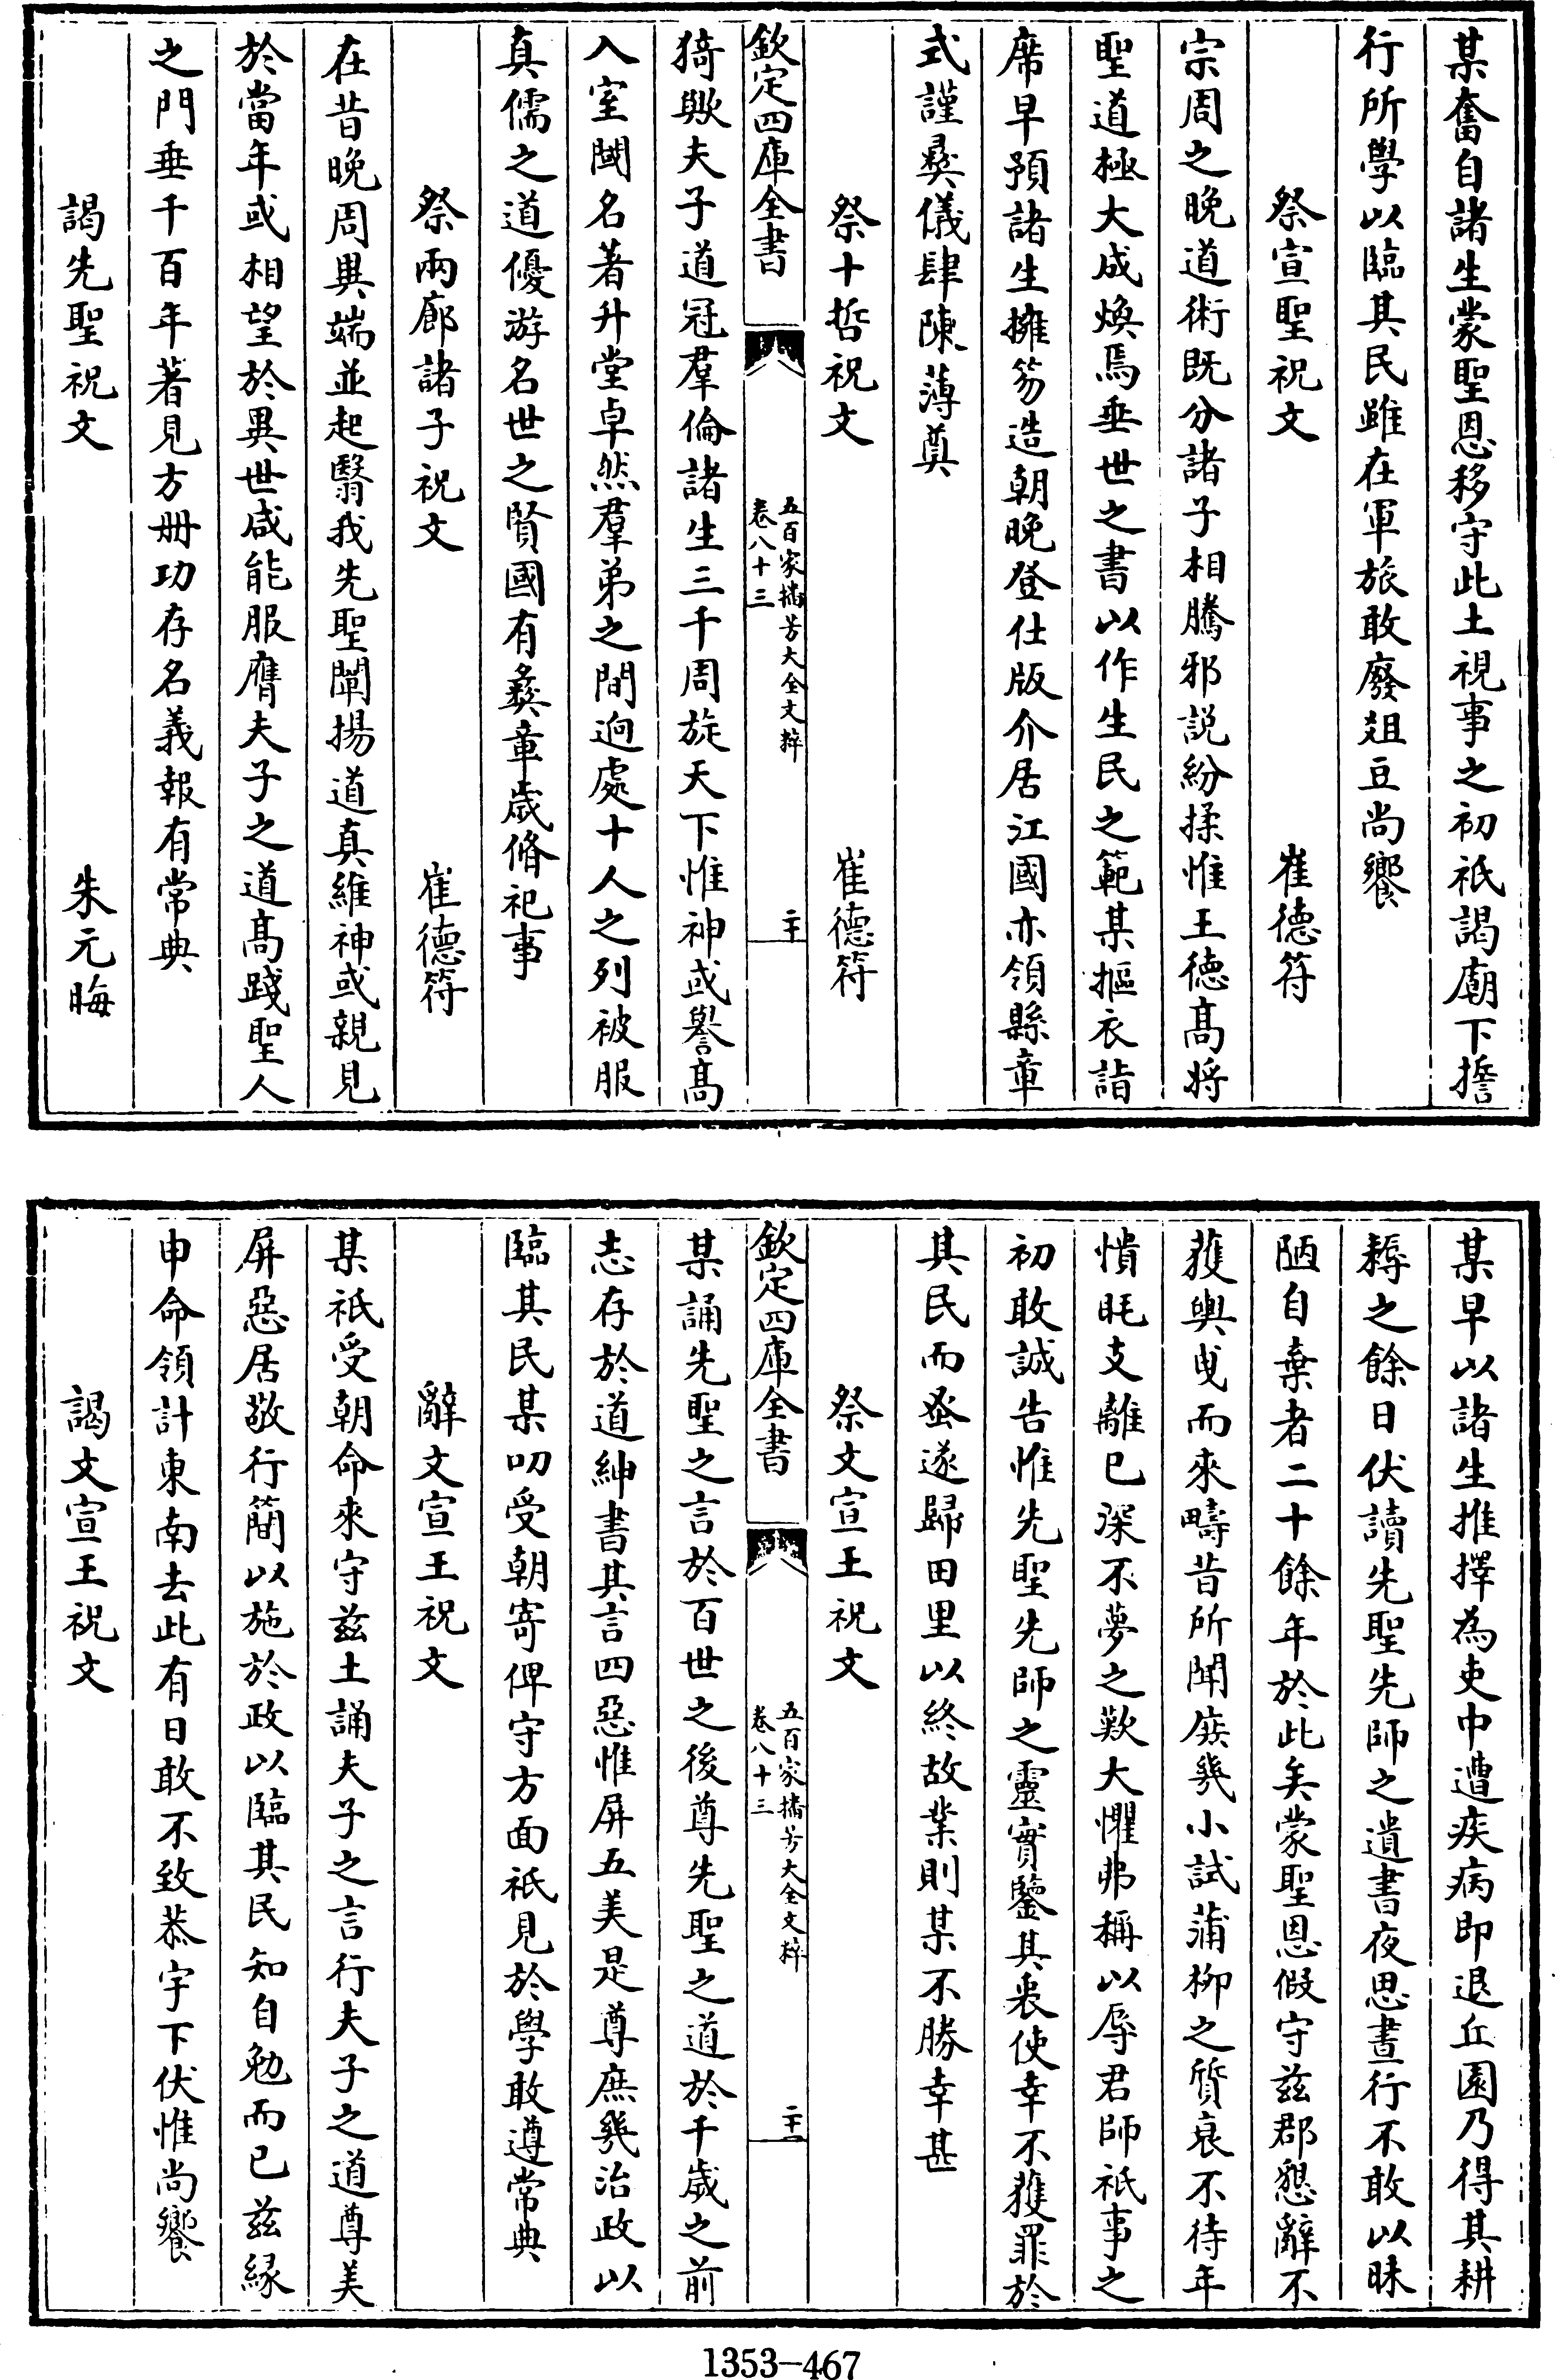 某奮自諸生蒙聖恩移守此土視事之初祇謁廟下擔
行所學以臨其民雖在軍旅敢廢爼豆尚饗
祭宣聖祝文 崔德符
宗周之晚道術既分諸子相騰邪説紛揉惟王德髙將
聖道極大成煥焉垂世之書以作生民之範某摳衣詣
席早預諸生擁笏造朝晚登仕版介居江國亦領縣章
式謹彛儀肆陳薄奠
祭十哲祝文 崔德符
欽定四庫全書
五百家播芳大全文粹
卷八十三
二十
猗歟夫子道冠羣倫諸生三千周旋天下惟神或譽髙
入室閫名著升堂卓然羣弟之間逈處十人之列被服
真儒之道優游名世之賢國有彛章歲脩祀事
祭兩廊諸子祝文 崔德符
在昔晚周異端並起翳我先聖闡揚道真維神或親見
於當年或相望於異世咸能服膺夫子之道髙踐聖人
之門垂千百年著見方册功存名義報有常典
謁先聖祝文 朱元晦
某早以諸生推擇為吏中遭疾病即退丘園乃得其耕
耨之餘日伏讀先聖先師之遺書夜思晝行不敢以昧
陋自棄者二十餘年於此矣蒙聖恩假守兹郡懇辭不
獲輿曵而來疇昔所聞庶幾小試蒲柳之質衰不待年
憒眊支離已深不夢之歎大懼弗稱以辱君師祇事之
初敢誠告惟先聖先師之靈實鑒其衷使幸不獲罪於
其民而蚤遂歸田里以終故業則某不勝幸甚
祭文宣王祝文
欽定四庫全書
五百家播芳大全文粹
卷八十三
二十一
某誦先聖之言於百世之後尊先聖之道於千歲之前
志存於道紳書其言四惡惟屏五美是尊庶幾治政以
臨其民某叨受朝寄俾守方面祇見於學敢遵常典
辭文宣王祝文
某祇受朝命來守兹土誦夫子之言行夫子之道尊美
屏惡居敬行簡以施於政以臨其民知自勉而已兹緣
申命領計東南去此有日敢不致恭宇下伏惟尚饗
謁文宣王祝文
1353-467